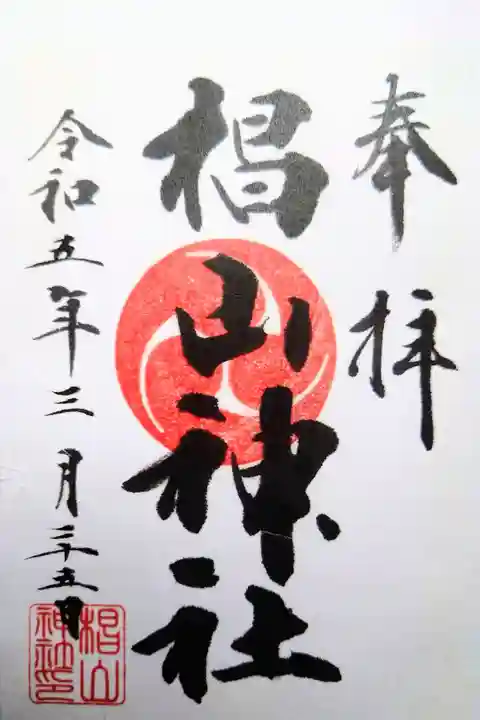 奉拝
椙山神社
令和五年三月二十五日
椙山
神社印